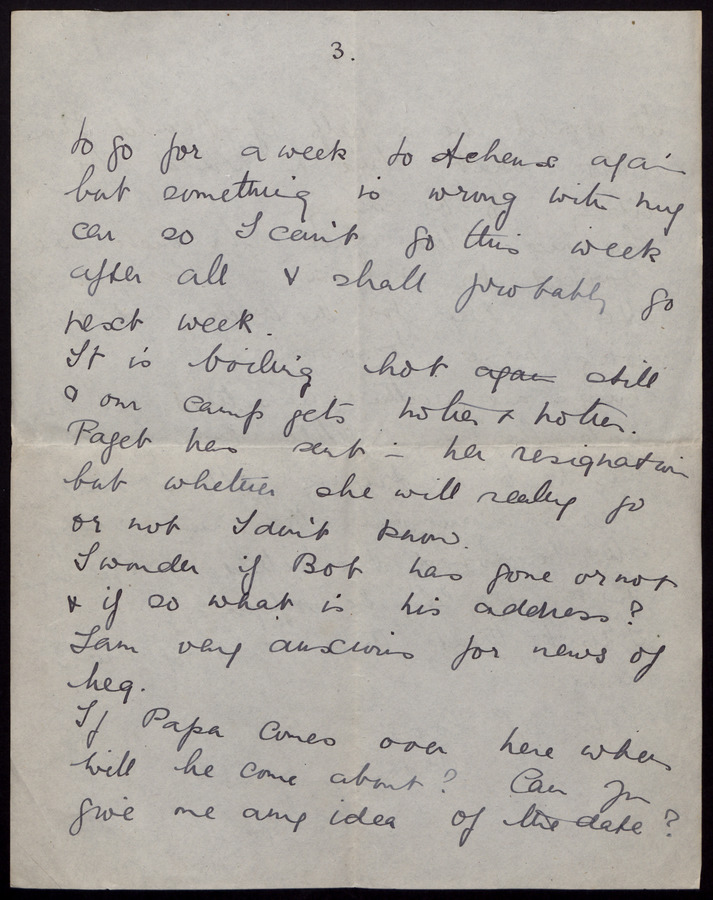 3.
to go for a week to Athens again
but something is wrong with my
car so I can't go this week
after all & shall probably go
next week.
It is boiling hot again still
& our camp gets hotter & hotter.
Paget has sent in her resignation
but whether she will really go
or not I don't know.
I wonder if Bob has gone or not
& if so what is his address?
I am very anxious for news of
heq.
If Papa comes over here when
will he come about? Can you
give me any idea of the date?